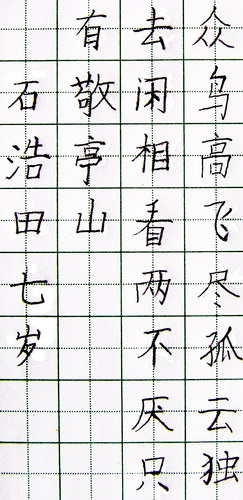 众鸟高飞尽孤云独
去闲相看两不厌只
有敬亭山
石浩田七岁